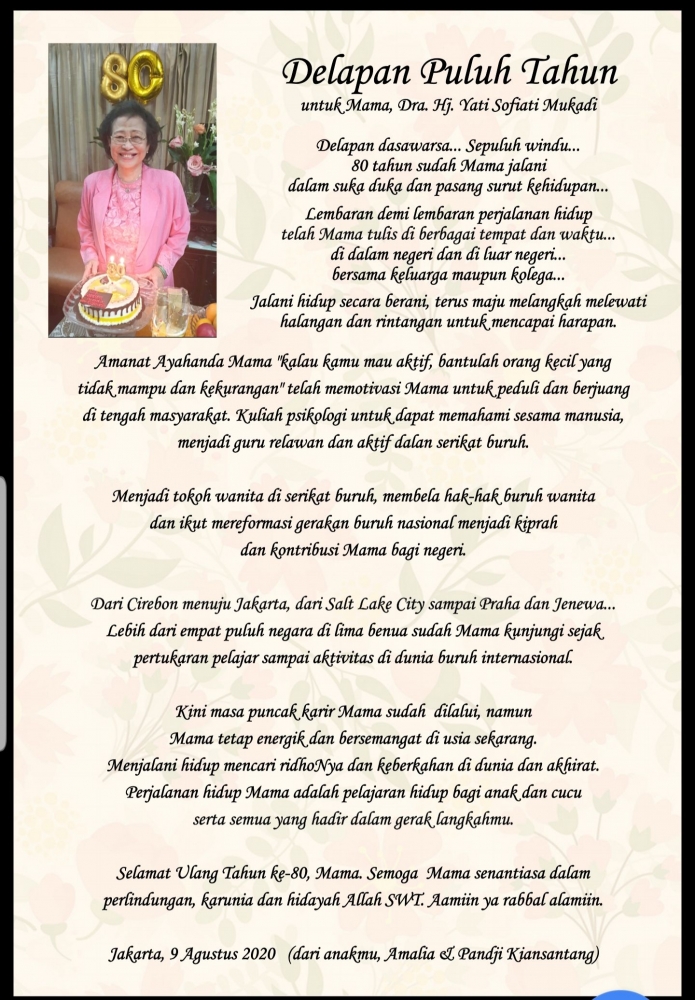 80
Delapan Puluh Tahun
untuk Mama, Dra. Hj. Yati Sofiati Mukadi
Delapan dasawarsa... Sepuluh windu...
80 tahun sudah Mama jalani
dalam suka duka dan pasang surut kehidupan...
Lembaran demi lembaran perjalanan hidup
telah Mama tulis di berbagai tempat dan waktu...
di dalam negeri dan di luar negeri...
bersama keluarga maupun kolega...
Jalani hidup secara berani, terus maju melangkah melewati
halangan dan rintangan untuk mencapai harapan.
Amanat Ayahanda Mama "kalau kamu mau aktif, bantulah orang kecil yang
tidak mampu dan kekurangan" telah memotivasi Mama untuk peduli dan berjuang
di tengah masyarakat. Kuliah psikologi untuk dapat memahami sesama manusia,
menjadi guru relawan dan aktif dalan serikat buruh.
Menjadi tokoh wanita di serikat buruh, membela hak-hak buruh wanita
dan ikut mereformasi gerakan buruh nasional menjadi kiprah
dan kontribusi Mama bagi negeri.
Dari Cirebon menuju Jakarta, dari Salt Lake City sampai Praha dan Jenewa...
Lebih dari empat puluh negara di lima benua sudah Mama kunjungi sejak
pertukaran pelajar sampai aktivitas di dunia buruh internasional.
Kini masa puncak karir Mama sudah dilalui, namun
Mama tetap energik dan bersemangat di usia sekarang.
Menjalani hidup mencari ridhoNya dan keberkahan di dunia dan akhirat.
Perjalanan hidup Mama adalah pelajaran hidup bagi anak dan cucu
serta semua yang hadir dalam gerak langkahmu.
Selamat Ulang Tahun ke-80, Mama. Semoga Mama senantiasa dalam
perlindungan, karunia dan hidayah Allah SWT. Aamiin ya rabbal alamiin.
Jakarta, 9 Agustus 2020 (dari anakmu, Amalia & Pandji Kiansantang)